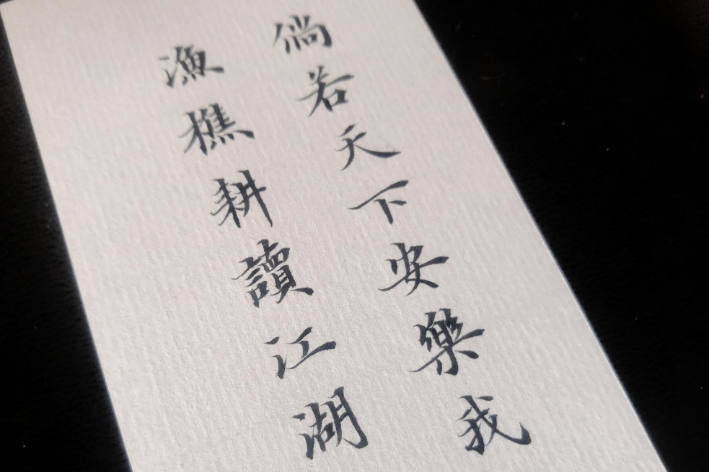 倘若天下安樂我
漁樵耕讀江湖